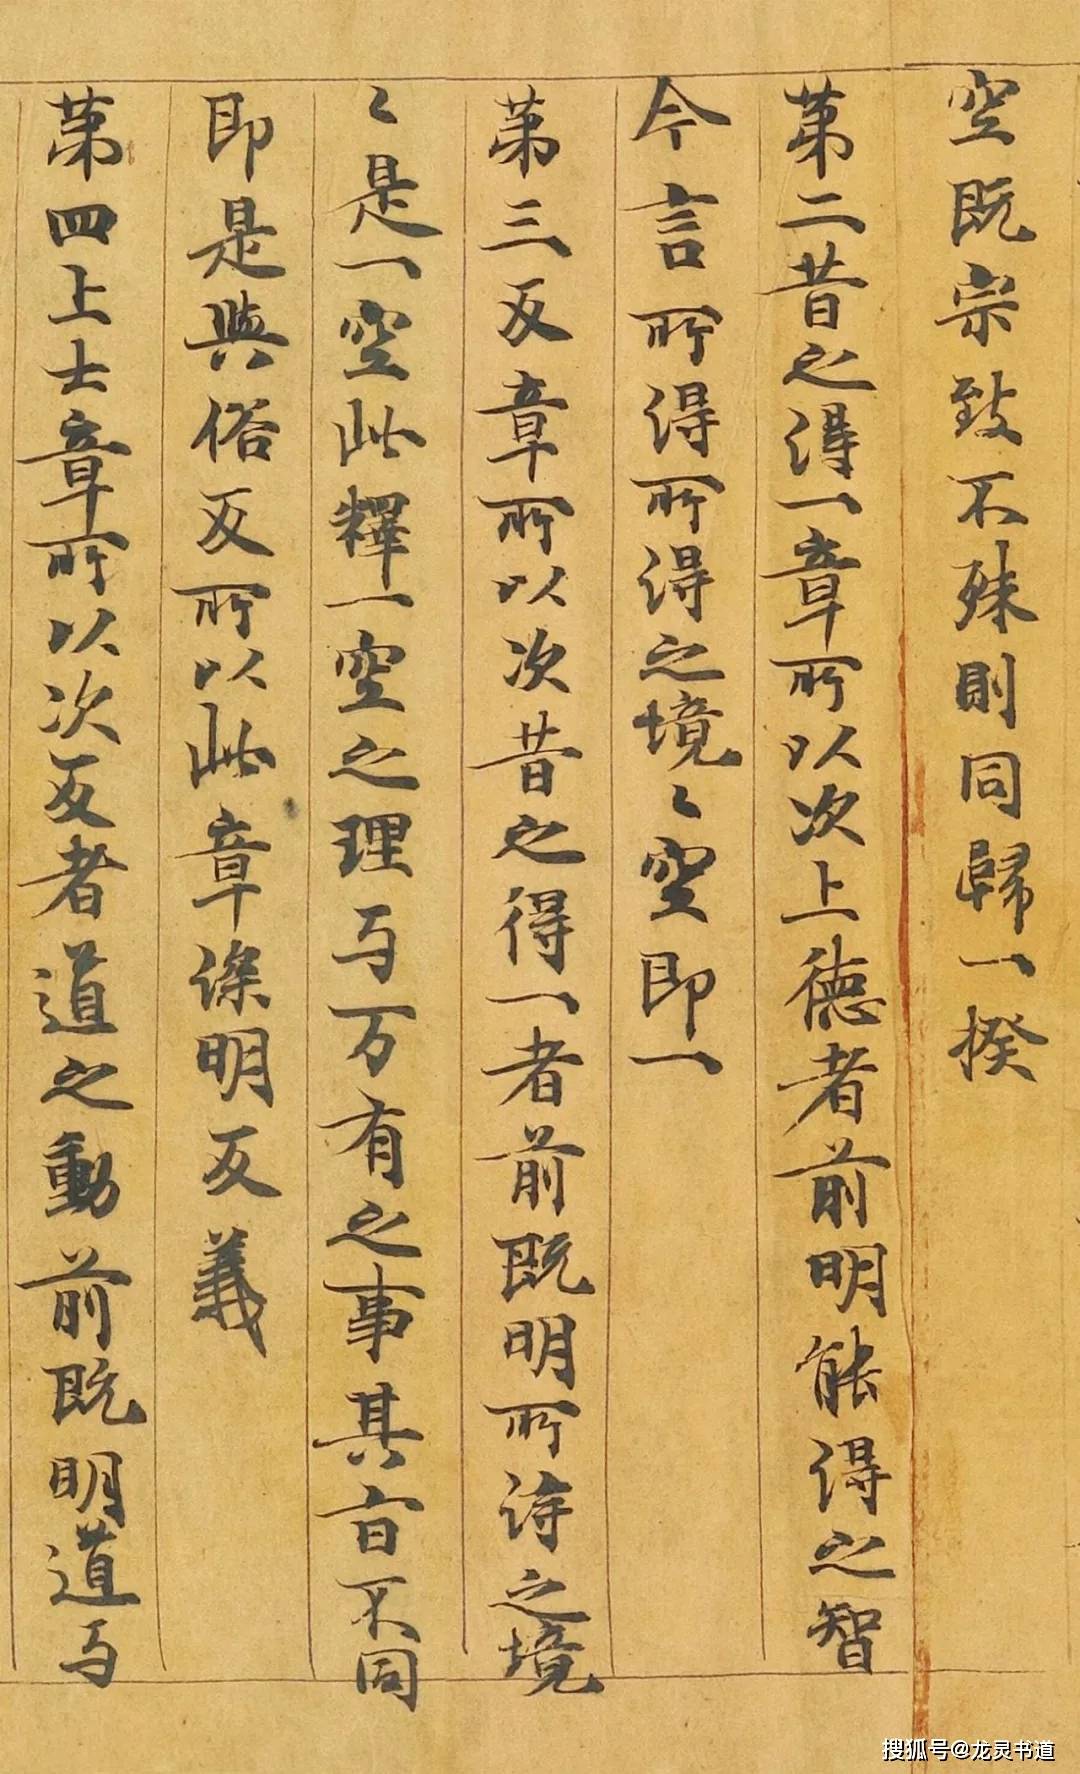 空既宗致不殊則同歸一揆
第二昔之得一章所以次上德者前明能得之智
今言所得所得之境〻空即一
第三反章所以次昔之得一者前既明所詩之境
〻是一空此釋一空之理与万有之事其旨不同
即是與俗反所以此章深明反義
第四上士章所以次反者道之動前既明道与
搜狐号@龙灵书道